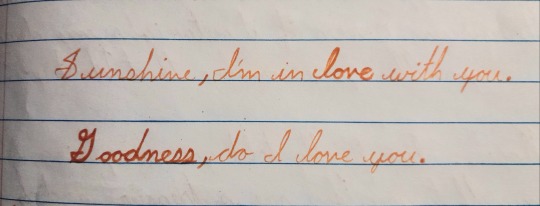 Sunshine, I'm in love with you.
Goodness, do I love you.